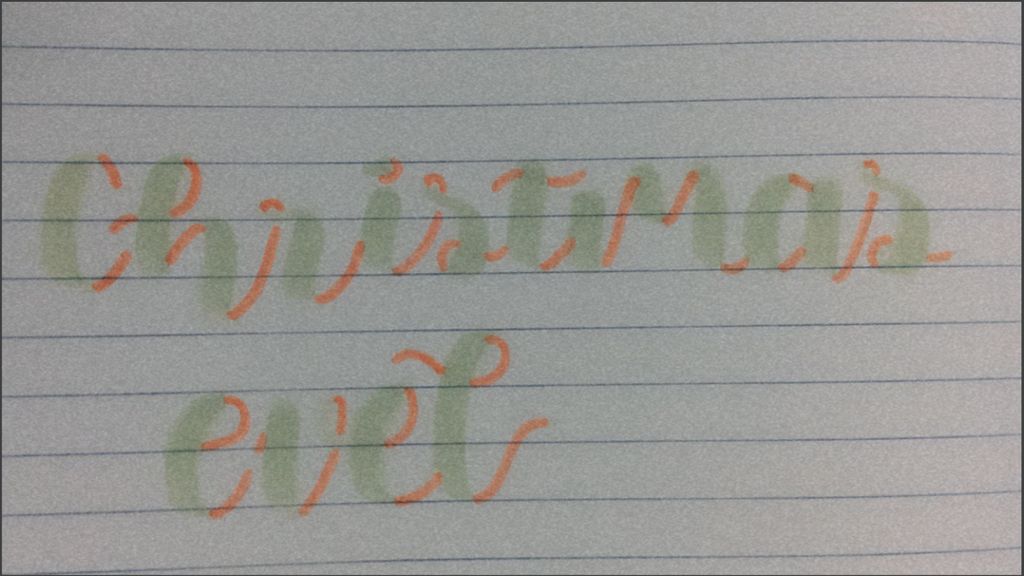 Christmas
evel